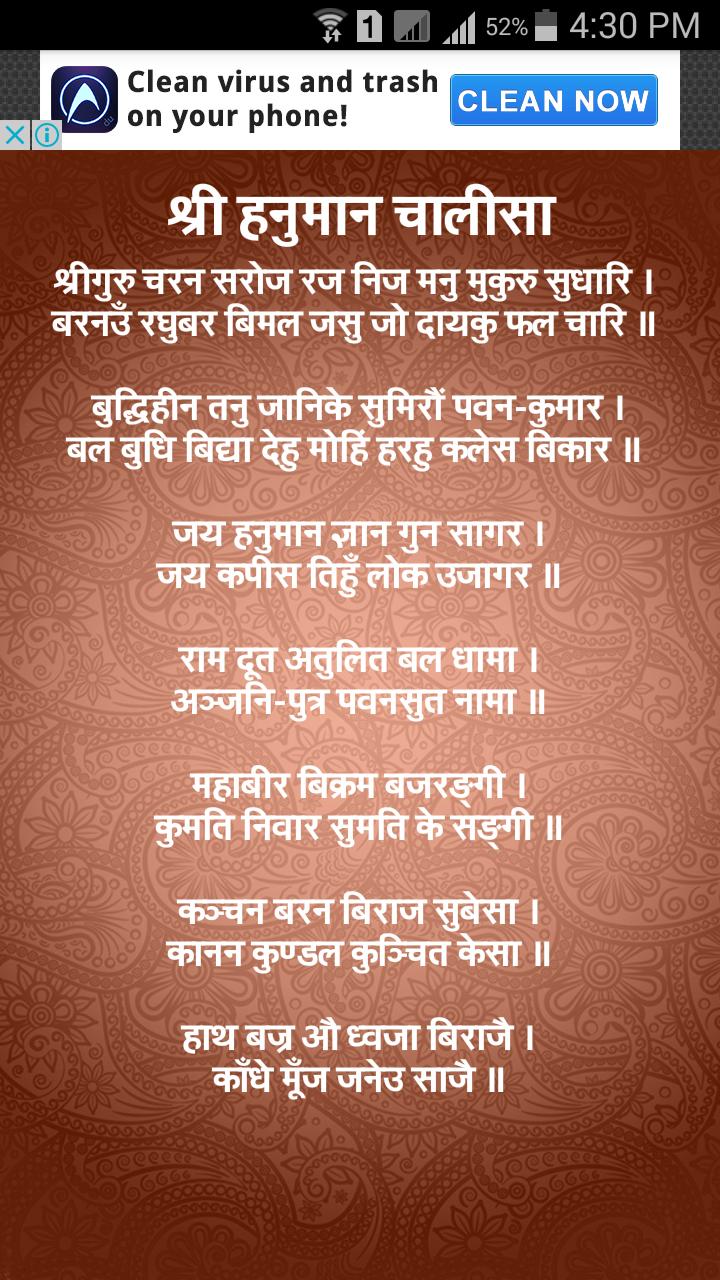 1 52% 4:30 PM
Clean virus and trash
on your phone!
CLEAN NOW
du
श्री हनुमान चालीसा
श्रीगुरु चरन सरोज रज निज मनु मुकुरु सुधारि ।
बरनउँ रघुबर बिमल जसु जो दायकु फल चारि ॥
बुद्धिहीन तनु जानिके सुमिरौं पवन-कुमार ।
बल बुधि बिद्या देहु मोहिं हरहु कलेस बिकार ॥
जय हनुमान ज्ञान गुन सागर ।
जय कपीस तिहुँ लोक उजागर ॥
राम दूत अतुलित बल धामा ।
अञ्जनि-पुत्र पवनसुत नामा ॥
महाबीर बिक्रम बजरङ्गी ।
कुमति निवार सुमति के सङ्गी ॥
कञ्चन बरन बिराज सुबेसा ।
कानन कुण्डल कुञ्चित केसा ॥
हाथ बज्र औ ध्वजा बिराजै ।
काँधे मूँज जनेउ साजै ॥